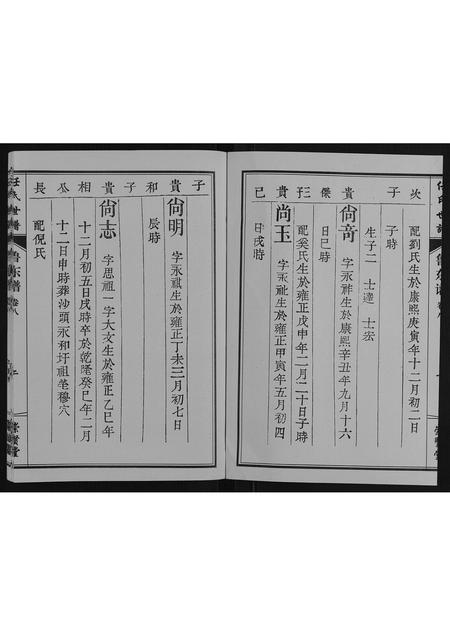 次 配劉氏生於康熙庚寅年十二月初二日
子 子時
生子二 士達 士宏
貴 尚竒 字永祥生於康熙辛丑年九月十六
傑 日巳時
三子 配奚氏生於雍正戊申年二月二十日子時
貴 尚玉 字永祉生於雍正甲寅年五月初四
已 日戌時
子
貴 尚明 字永祺生於雍正丁未三月初七日
和 辰時
子
貴 尚志 字思祖一字大文生於雍正乙巳年
相 十二月初五日戌時卒於乾隆癸巳年二月
公 十二日申時葬沙頭永和圩祖塋穆穴
長 配倪氏
任氏世譜 魯东谱 卷八